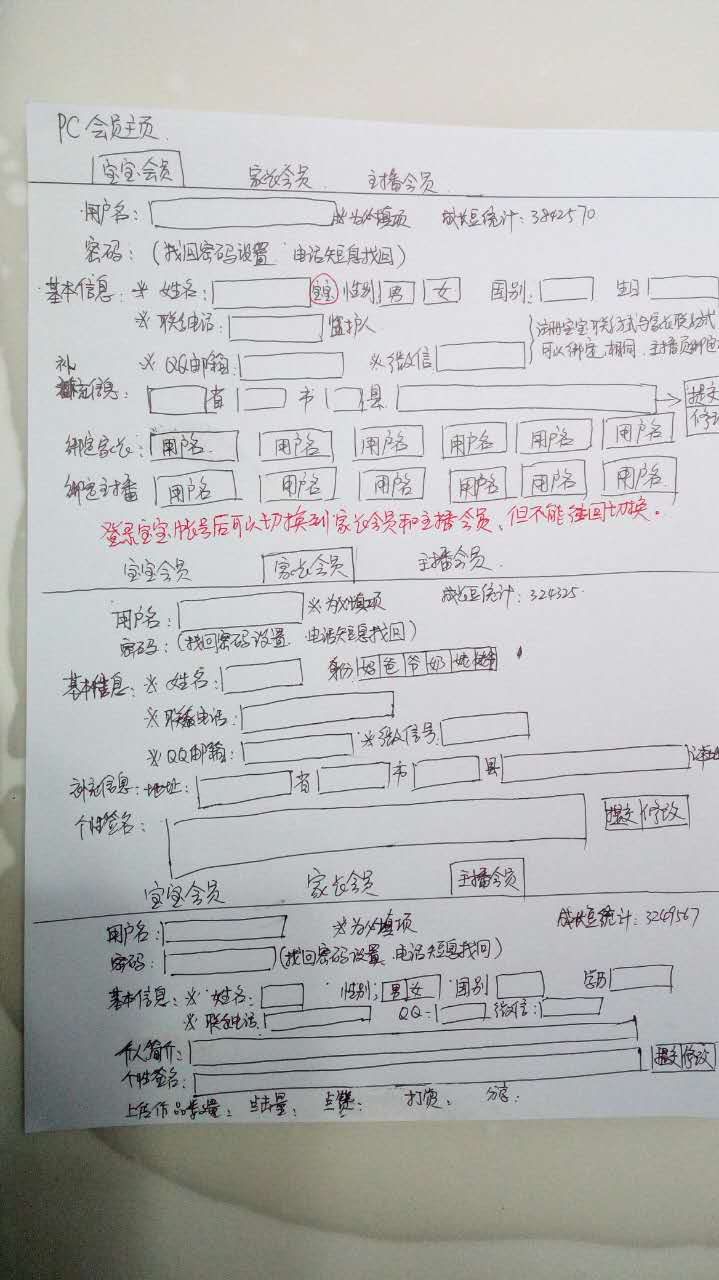 PC会员主页
宝宝会员 家长会员 主播会员
用户名： ※为必填项 成长豆统计：3842570
密码：（找回密码设置 电话短息找回）
基本信息：※ 姓名： 宝宝 性别 男 女 国别： 生日
※ 联系电话： 监护人
注册宝宝联系方式与家长联系方式
可以绑定相同.主播页绑定
补充信息： ※ QQ邮箱： ※微信
省 市 县 提交 修改
绑定家长：用户名 用户名 用户名 用户名 用户名 用户名
绑定主播 用户名 用户名 用户名 用户名 用户名 用户名
登录宝宝帐号后可以切换到家长会员和主播会员，但不能往回切换。
宝宝会员 家长会员 主播会员
用户名： ※为必填项 成长豆统计：324325
密码：（找回密码设置 电话短息找回）
基本信息：※ 姓名： 身份 妈 爸 爷 奶 姥
※ 联系电话：
※QQ邮箱： ※微信号：
补充信息：地址： 省 市 县
个性签名： 提交 修改
宝宝会员 家长会员 主播会员
用户名： ※为必填项 成长豆统计：3249567
密码： （找回密码设置、电话短息找回）
基本信息：※ 姓名： 性别：男 女 国别 学历
※ 联系电话： QQ： 微信：
个人简介：
个性签名： 提交 修改
上传作品数量： 点击量： 点赞： 打赏： 分享：